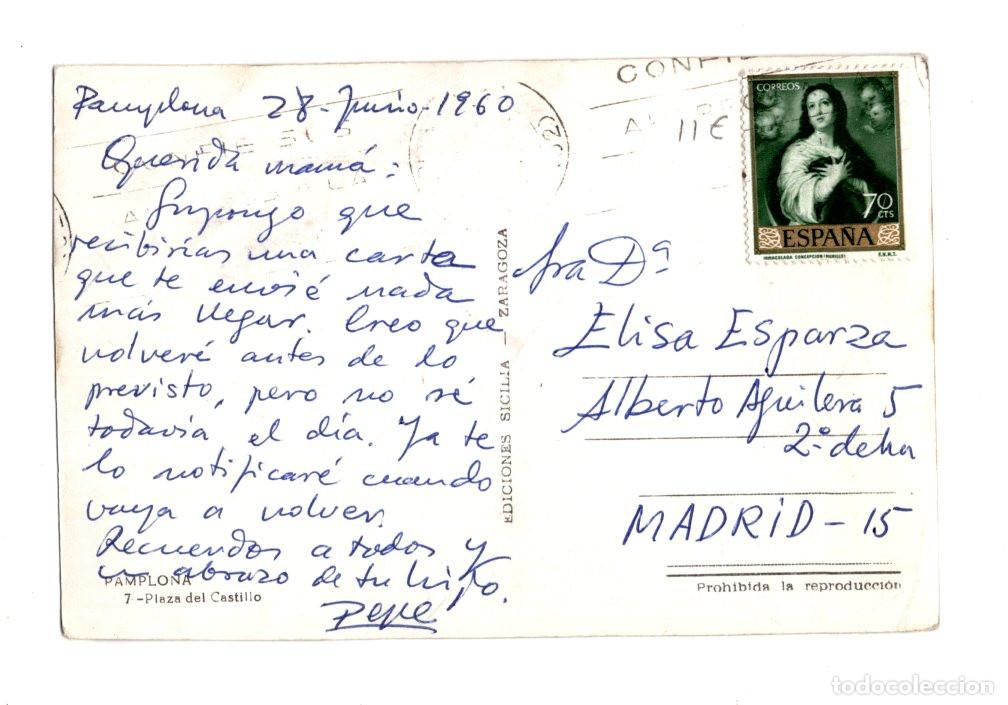 Pamplona 28-Junio-1960
Querida mamá:
Supongo que
recibirías una carta
que te envié nada
más llegar. Creo que
volveré antes de lo
previsto, pero no sé
todavía el día. Ya te
lo notificaré cuando
vaya a volver.
Recuerdos a todos y
un abrazo de tu hijo.
Pepe
PAMPLONA
7-Plaza del Castillo
EDICIONES SICILIA — ZARAGOZA
11€
CORREOS
70
CTS
ESPAÑA
INMACULADA CONCEPCION (MURILLO)
F.N.M.T.
Sra Dª
Elisa Esparza
Alberto Aguilera 5
2º dcha
MADRID-15
Prohibida la reproducción
todocoleccion